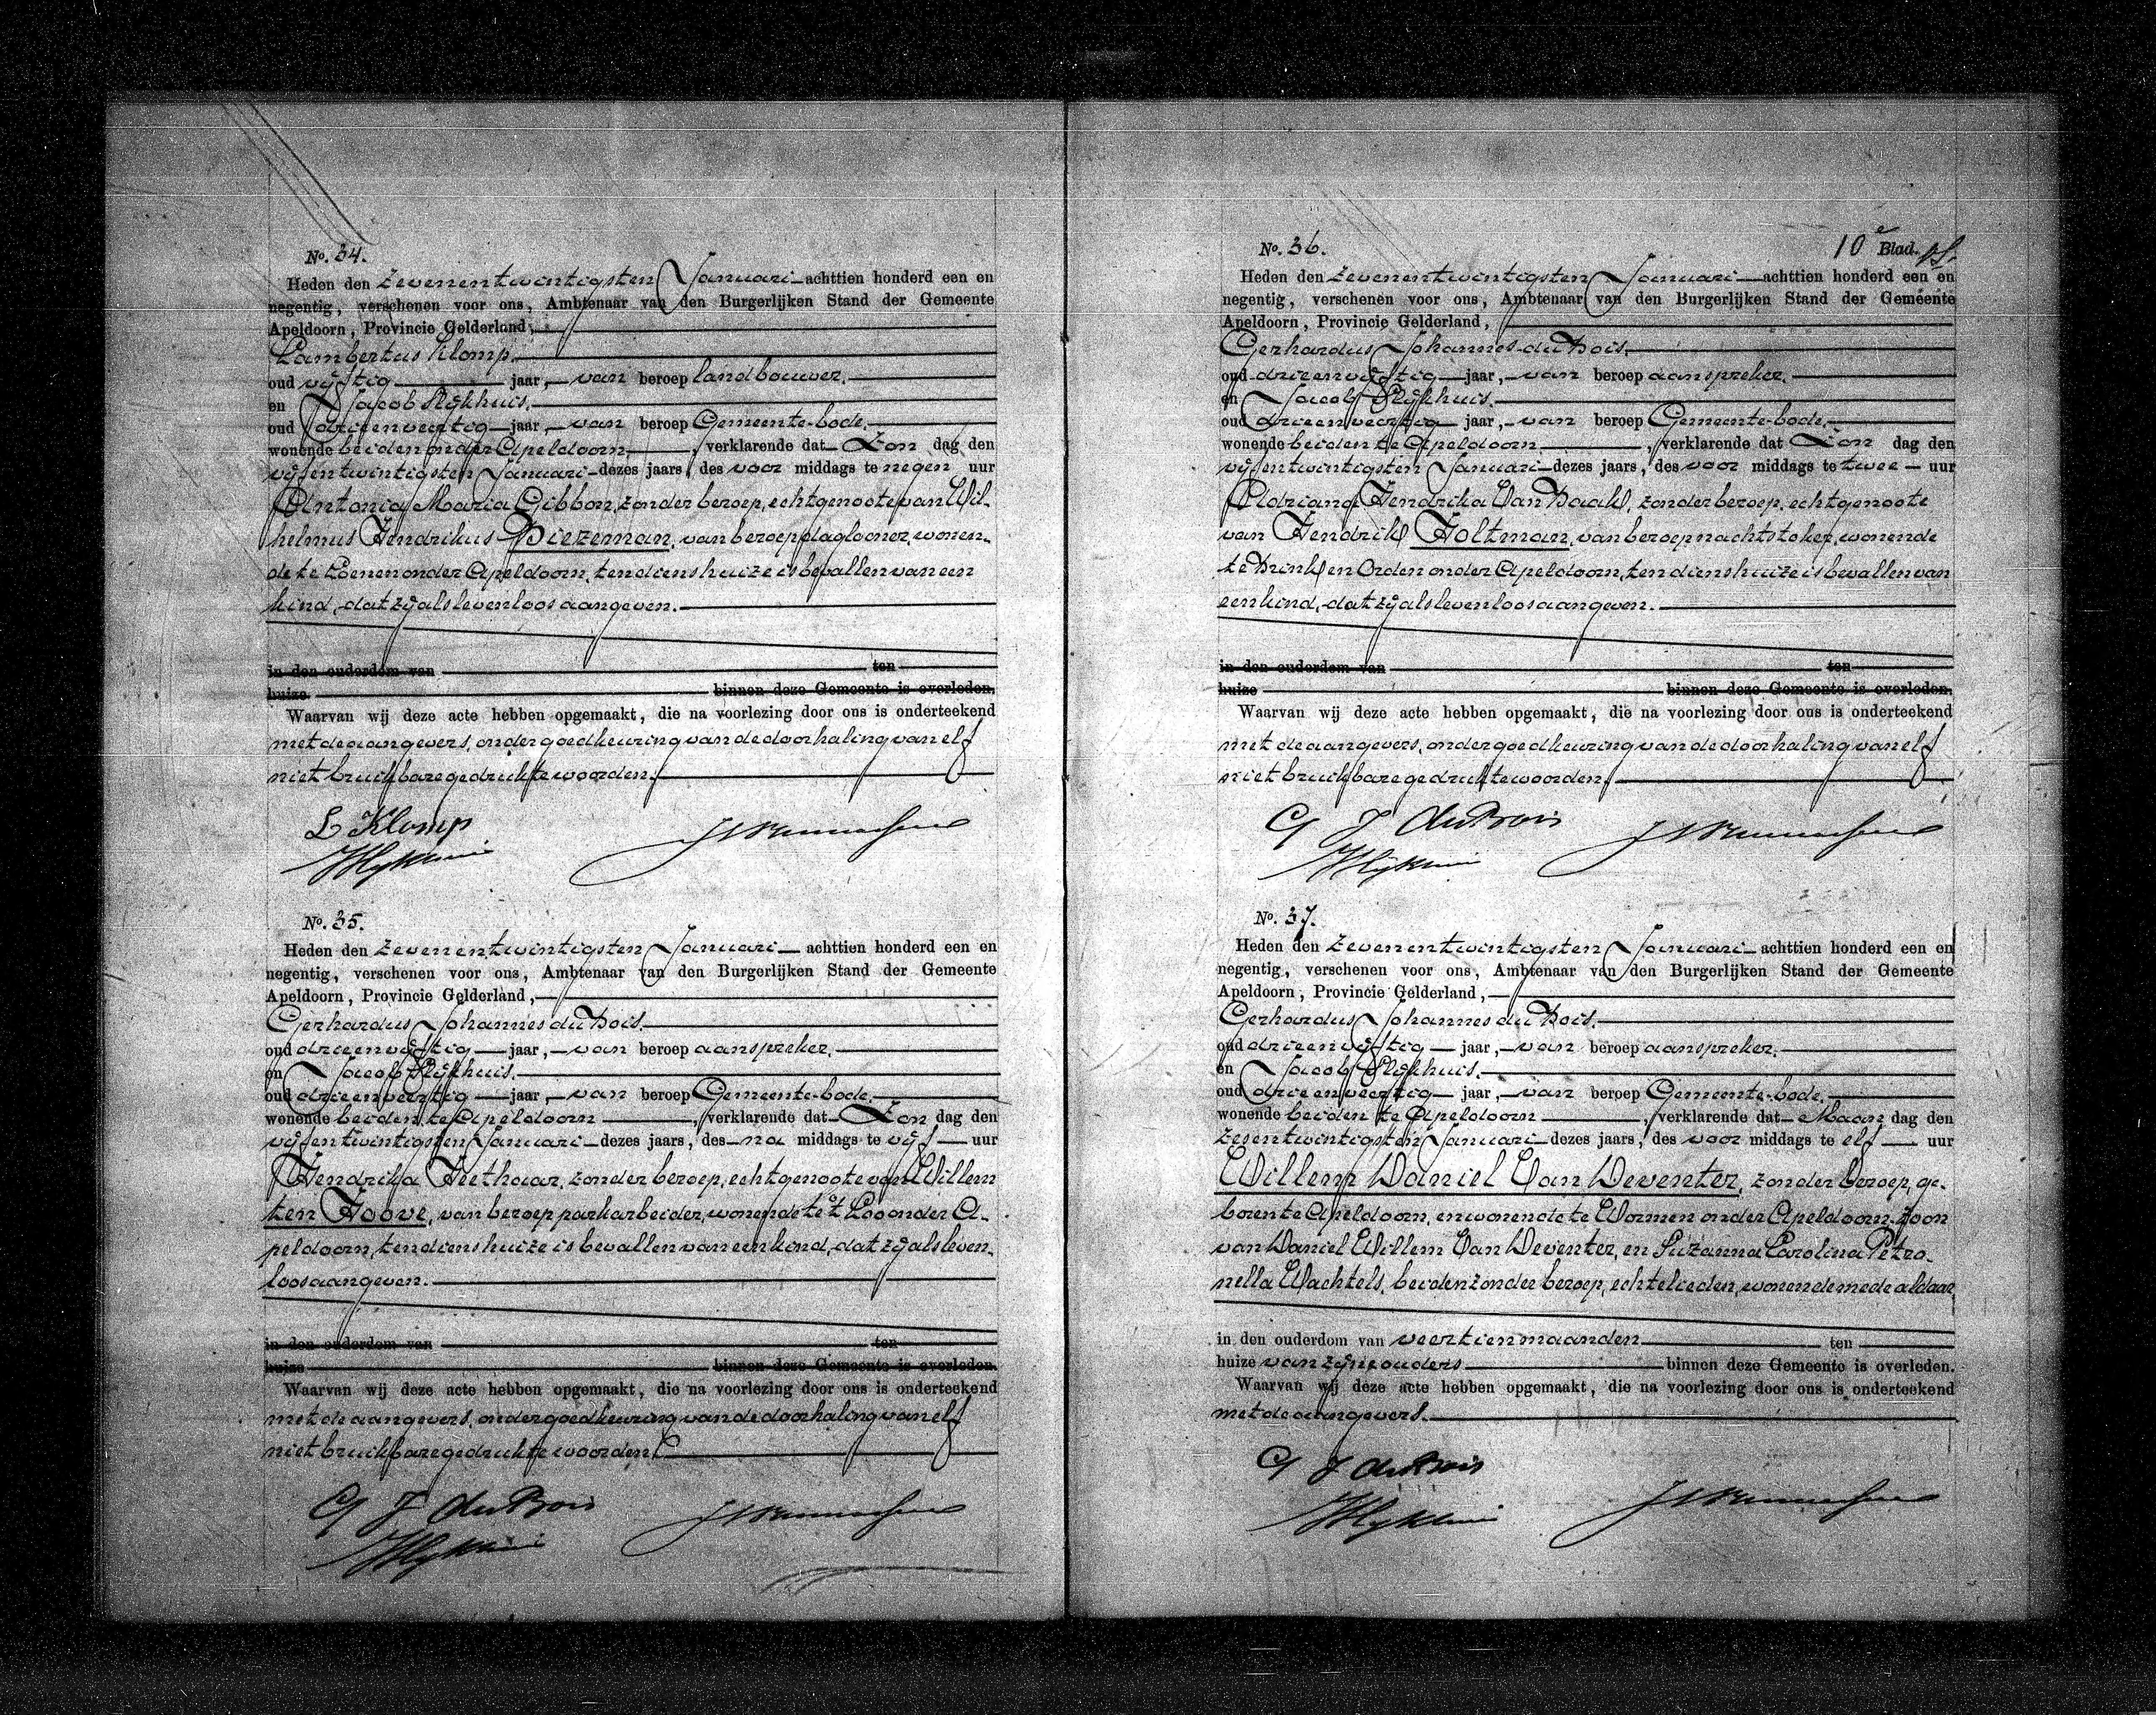 No. 34.
Heden den zevenentwintigsten Januari achttien honderd een en
negentig, verschenen voor ons, Ambtenaar van den Burgerlijken Stand der Gemeente
Apeldoorn, Provincie Gelderland,
Lambertus Klomp.
oud vijftig jaar, van beroep landbouwer.
en Jacob Rijkhuis.
oud drieenveertig jaar, van beroep Gemeente-bode.
wonende beiden onder Apeldoorn, verklarende dat Zon dag den
vijfentwintigsten Januari dezes jaars, des voor middags te negen uur
Antonia Maria Gibbon, zonder beroep, echtgenoote van Wil-
helmus Hendrikus Biezeman, van beroep daglooner, wonen-
de te Loenen onder Apeldoorn, ten diens huize is bevallen van een
kind, dat zij als levenloos aangeven.
in den ouderdom van ten
huize binnen deze Gemeente is overleden.
Waarvan wij deze acte hebben opgemaakt, die na voorlezing door ons is onderteekend
met de aangevers, onder goedkeuring van de doorhaling van elf
niet bruikbare gedrukte woorden.
L Klomp
No. 35.
Heden den zevenentwintigsten Januari achttien honderd een en
negentig, verschenen voor ons, Ambtenaar van den Burgerlijken Stand der Gemeente
Apeldoorn, Provincie Gelderland,
Gerhardus Johannes du Bois.
oud drieenvijftig jaar, van beroep aanspreker.
en Jacob Rijkhuis.
oud drieenveertig jaar, van beroep Gemeente-bode.
wonende beiden te Apeldoorn, verklarende dat Zon dag den
vijfentwintigsten Januari dezes jaars, des na middags te vijf uur
Hendrika Heethaar, zonder beroep, echtgenoote van Willem
ten Hoove, van beroep parkarbeider, wonende te 't Loo onder A-
peldoorn, ten diens huize is bevallen van een kind, dat zij als leven-
loos aangeven.
in den ouderdom van ten
huize binnen deze Gemeente is overleden.
Waarvan wij deze acte hebben opgemaakt, die na voorlezing door ons is onderteekend
met de aangevers, onder goedkeuring van de doorhaling van elf
niet bruikbare gedrukte woorden.
G J du Bois
10e Blad.
No. 36.
Heden den zevenentwintigsten Januari achttien honderd een en
negentig, verschenen voor ons, Ambtenaar van den Burgerlijken Stand der Gemeente
Apeldoorn, Provincie Gelderland,
Gerhardus Johannes du Bois.
oud drieenvijftig jaar, van beroep aanspreker.
en Jacob Rijkhuis.
oud drieenveertig jaar, van beroep Gemeente-bode.
wonende beiden te Apeldoorn, verklarende dat Zon dag den
vijfentwintigsten Januari dezes jaars, des voor middags te twee uur
Adriana Hendrika Van Baak, zonder beroep, echtgenoote
van Hendrik Holtman, van beroep nachtstoker, wonende
te Brink en Orden onder Apeldoorn, ten diens huize is bevallen van
een kind, dat zij als levenloos aangeven.
in den ouderdom van ten
huize binnen deze Gemeente is overleden.
Waarvan wij deze acte hebben opgemaakt, die na voorlezing door ons is onderteekend
met de aangevers, onder goedkeuring van de doorhaling van elf
niet bruikbare gedrukte woorden.
G J du Bois
No. 37.
Heden den zevenentwintigsten Januari achttien honderd een en
negentig, verschenen voor ons, Ambtenaar van den Burgerlijken Stand der Gemeente
Apeldoorn, Provincie Gelderland,
Gerhardus Johannes du Bois.
oud drieenvijftig jaar, van beroep aanspreker.
en Jacob Rijkhuis.
oud drieenveertig jaar, van beroep Gemeente-bode.
wonende beiden te Apeldoorn, verklarende dat Maan dag den
zesentwintigsten Januari dezes jaars, des voor middags te elf uur
Willem Daniel Van Deventer, zonder beroep, ge-
boren te Apeldoorn, en wonende te Wormen onder Apeldoorn, zoon
van Daniel Willem Van Deventer, en Suzanna Carolina Petro-
nella Wachtels, beiden zonder beroep, echtelieden, wonende mede aldaar,
in den ouderdom van veertien maanden ten
huize van zijne ouders binnen deze Gemeente is overleden.
Waarvan wij deze acte hebben opgemaakt, die na voorlezing door ons is onderteekend
met de aangevers.
G J du Bois